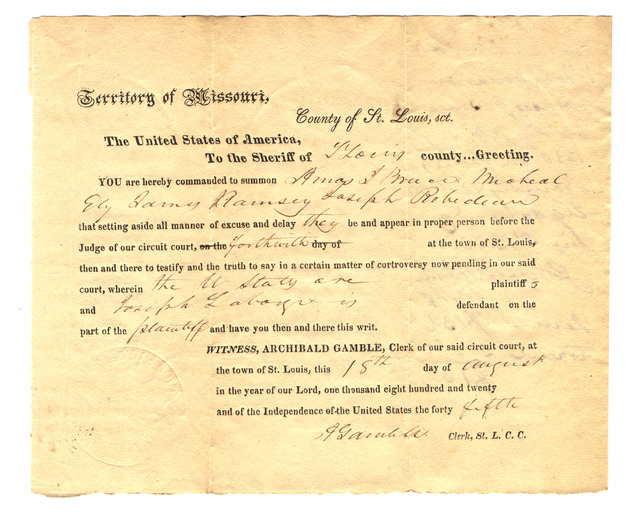 Territory of Missouri,
County of St. Louis, sct.
The United States of America,
To the Sheriff of St Louis county...Greeting.
YOU are hereby commanded to summon Amos J Bruce Micheal
Ely James Ramsey Joseph Robedeux
that setting aside all manner of excuse and delay they be and appear in proper person before the
Judge of our circuit court, on the forthwith day of at the town of St. Louis,
then and there to testify and the truth to say in a certain matter of controversy now pending in our said
court, wherein the U States are plaintiff s
and Joseph is defendant on the
part of the plaintiff and have you then and there this writ.
WITNESS, ARCHIBALD GAMBLE, Clerk of our said circuit court, at
the town of St. Louis, this 18th day of August
in the year of our Lord, one thousand eight hundred and twenty
and of the Independence of the United States the forty fifth
A Gamble Clerk, St. L. C. C.